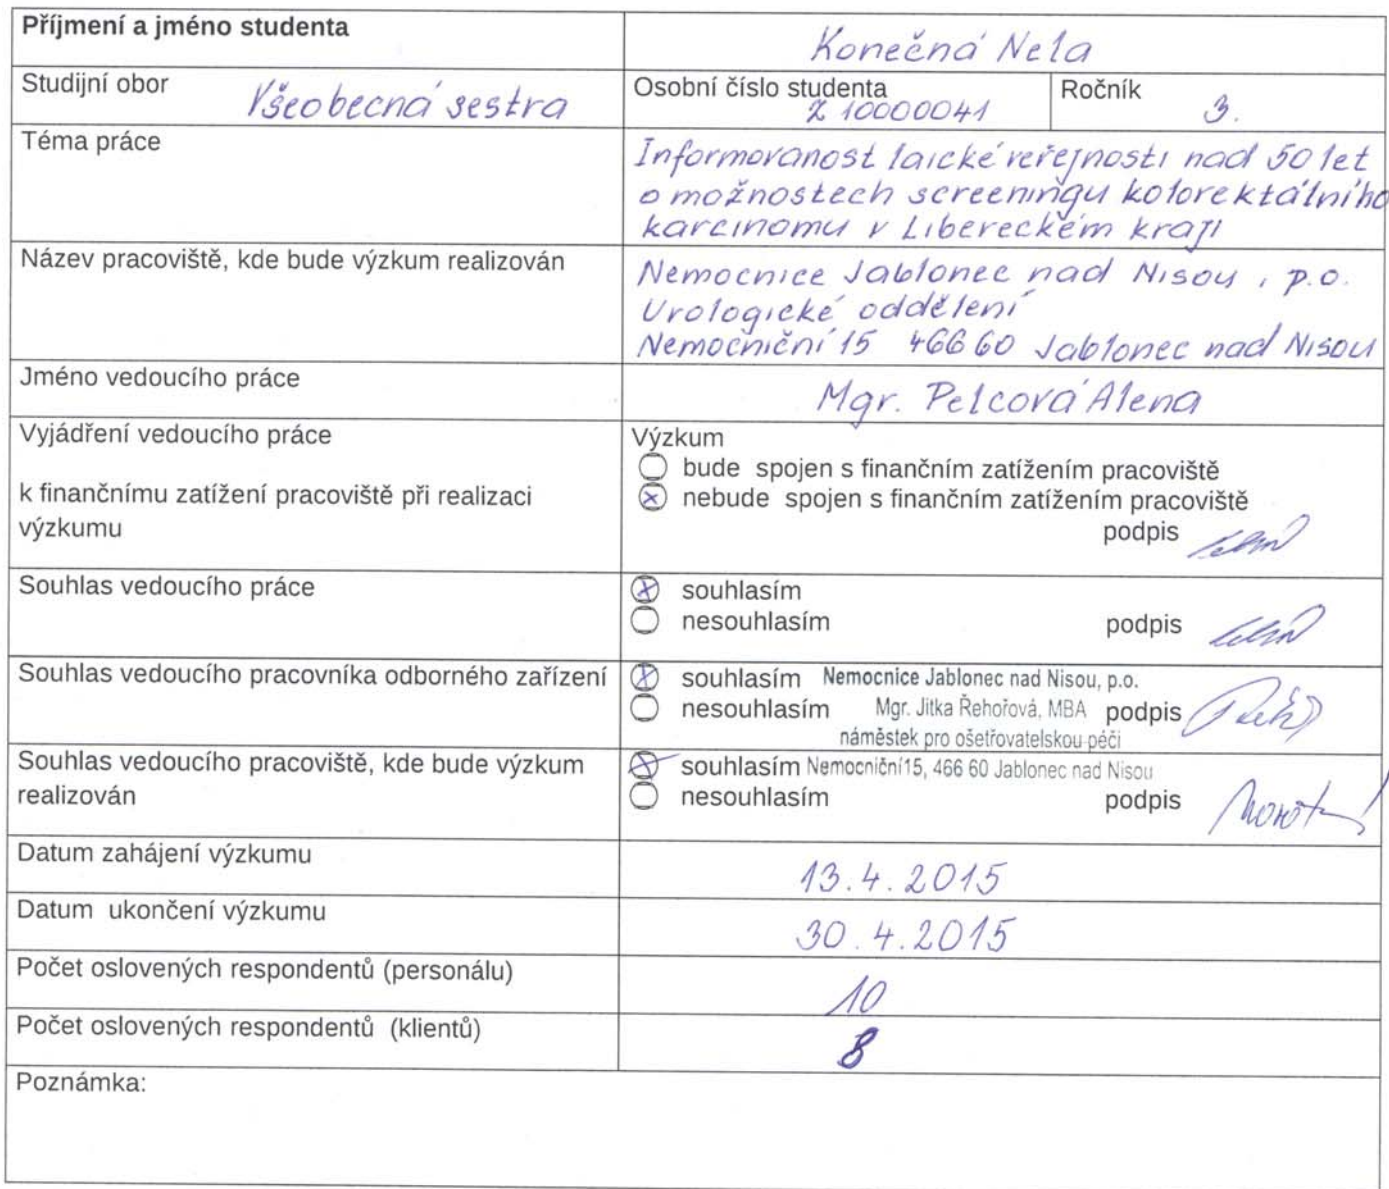 Příjmení a jméno studenta
Konečná Nela
Studijní obor
Všeobecná sestra
Osobní číslo studenta
Z 10000041
Ročník
3.
Téma práce
Informovanost laické veřejnosti nad 50 let
o možnostech screeningu kolorektálního
karcinomu v Libereckém kraji
Název pracoviště, kde bude výzkum realizován
Nemocnice Jablonec nad Nisou, p.o.
Urologické oddělení
Nemocniční 15 466 60 Jablonec nad Nisou
Jméno vedoucího práce
Mgr. Pelcová Alena
Vyjádření vedoucího práce
k finančnímu zatížení pracoviště při realizaci
výzkumu
Výzkum
bude spojen s finančním zatížením pracoviště
nebude spojen s finančním zatížením pracoviště
podpis
Souhlas vedoucího práce
souhlasím
nesouhlasím podpis
Souhlas vedoucího pracovníka odborného zařízení
souhlasím Nemocnice Jablonec nad Nisou, p.o.
nesouhlasím Mgr. Jitka Řehořová, MBA podpis
náměstek pro ošetřovatelskou péči
Souhlas vedoucího pracoviště, kde bude výzkum
realizován
souhlasím Nemocniční15, 466 60 Jablonec nad Nisou
nesouhlasím podpis
Datum zahájení výzkumu
13.4.2015
Datum ukončení výzkumu
30.4.2015
Počet oslovených respondentů (personálu)
10
Počet oslovených respondentů (klientů)
8
Poznámka: